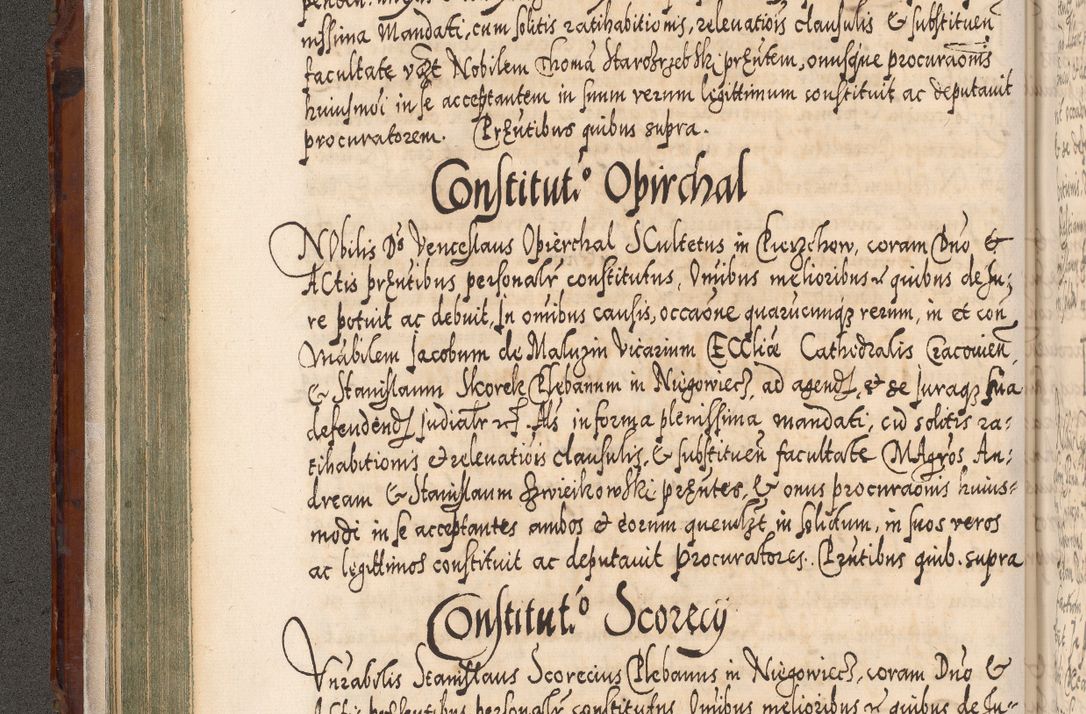 nissima Mandati, cum solitis ratihabitionis, relevatiois clausulis & substituen
facultate vzt Nobilem Thomã Starosrzebski prñtem, onusque procuraõnis
huiusmõi in se acceptantem in suum verum legittimum constituit ac deputauit
procuratorem. Prñtibus quibus supra.
Constitut.º Opirchal
Nobilis Ds Venceslaus Opierchal Scultetus in coram Dnõ &
Actis prñtibus personalr constitutus, Omibus melioribus quibus de Ju:
re potuit ac debuit, In omibus causis, occaõne quarũcunqz rerum, in et con
Jacobum de Maluzin Vicarium Ecclíæ Cathedralis Cracovien
& Stanislaum Skorek Plebanum in Niegowiecz, ad agend, et se Juraqz sua
defendend Judialr Als in forma plenissima mandati, cũ solitis ra:
tihabitionis et relevatiois clausulis, & substituen facultate Magros An:
dream & Stanislaum Zwieikowski prñtes, & onus procuraõnis huius=
modi in se acceptantes ambos et eorum quemlzt in solidum, in suos veros
ac legittimos constituit ac deputauit Procuratores. Prñtibus quib. supra
Constitut.º Scorecij
Vnrabilis Stanislaus Scorecius Plebanus in Niegowiecz, coram Dnõ &
Actis prãsentibus personalr constitutus, Omibus melioribus quibus de Ju=